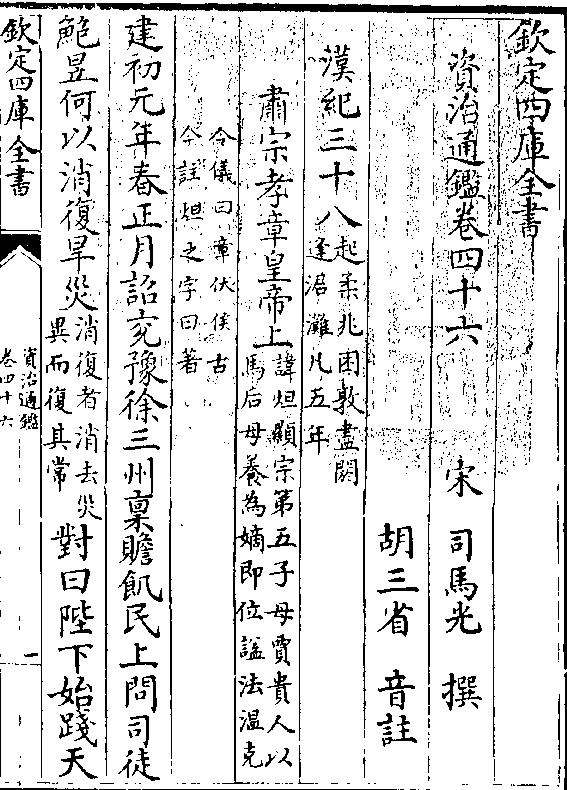 欽定四庫全書
資治通鑑卷四十六
宋 司馬光 撰
胡三省 音註
漢紀三十八起柔兆困敦盡閼逢涒灘凡五年
肅宗孝章皇帝上諱炟顯宗第五子母賈貴人以馬后母養為嫡即位諡法温克
令儀曰章伏侯古今註炟之字曰著
建初元年春正月詔兗豫徐三州稟贍飢民上問司徒
鮑昱何以消復旱災消復者消去災異而復其常對曰陛下始踐天
欽定四庫全書
資治通鑑
卷四十六
一